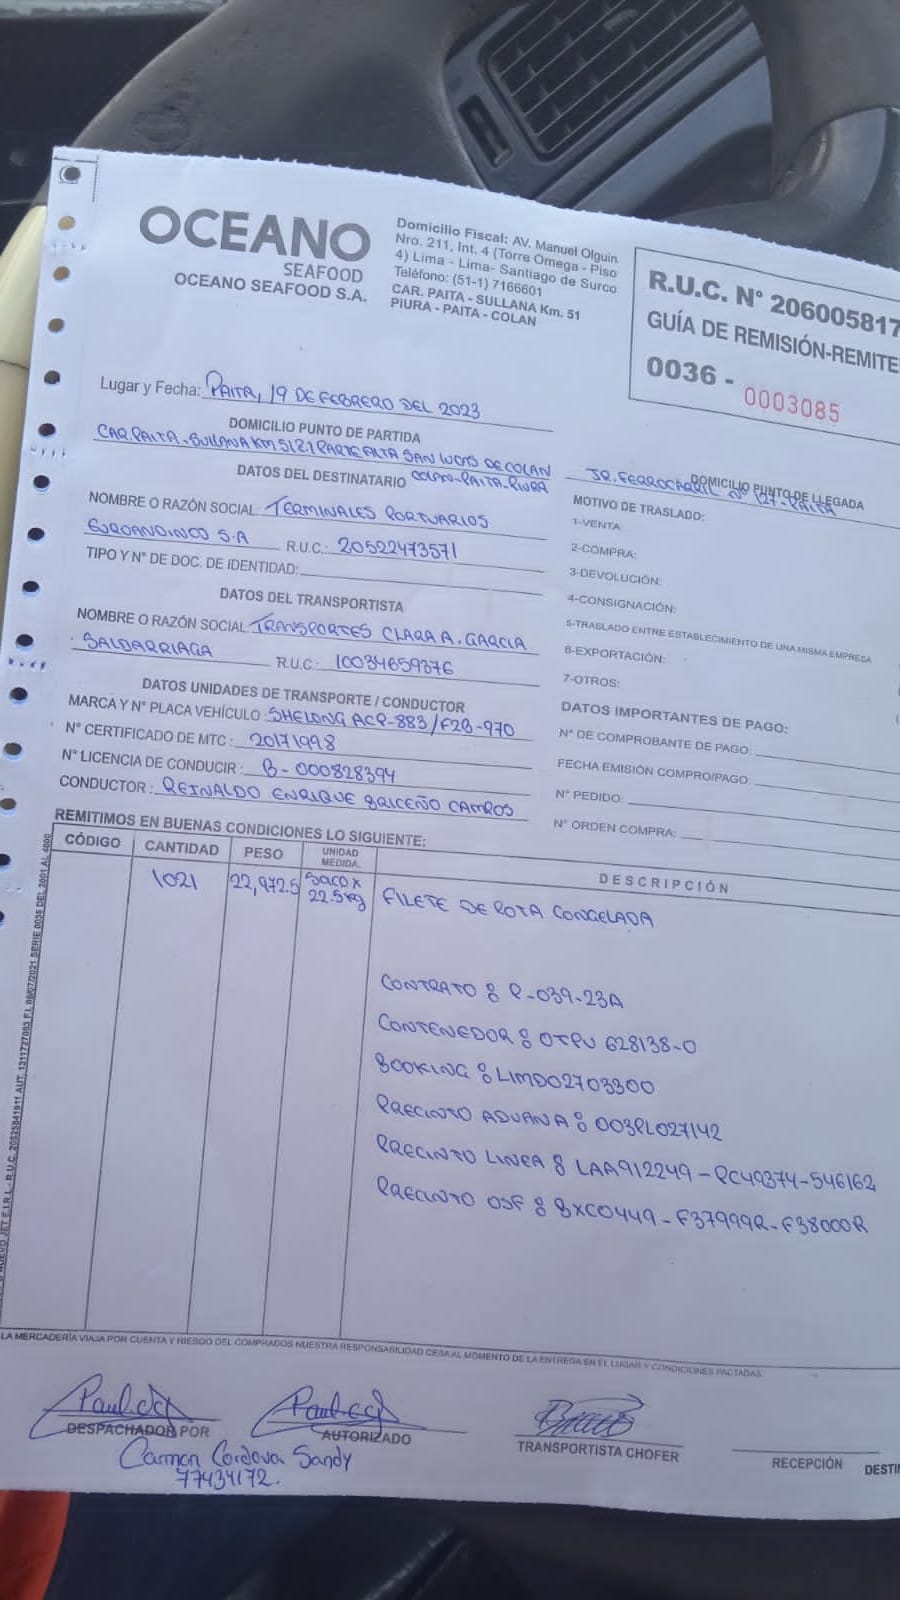 OCEANO
SEAFOOD
OCEANO SEAFOOD S.A.
Domicilio Fiscal: AV. Manuel Olguin
Nro. 211, Int. 4 (Torre Omega - Piso
4) Lima - Lima- Santiago de Surco
Teléfono: (51-1) 7166601
CAR. PAITA - SULLANA Km. 51
PIURA - PAITA - COLAN
R.U.C. N° 206005817
GUÍA DE REMISIÓN-REMITE
0036 - 0003085
Lugar y Fecha: PAITA, 19 DE FEBRERO DEL 2023
DOMICILIO PUNTO DE PARTIDA
CAR. PAITA - SULLANA KM 5121 PARTE ALTA SAN LUCAS DE COLAN
COLAN-PAITA-PIURA
DOMICILIO PUNTO DE LLEGADA
JR. FERROCARRIL N° 127 - PAITA
DATOS DEL DESTINATARIO
NOMBRE O RAZÓN SOCIAL: TERMINALES PORTUARIOS
EUROANDINOS S.A R.U.C.: 20522473571
TIPO Y N° DE DOC. DE IDENTIDAD:
DATOS DEL TRANSPORTISTA
NOMBRE O RAZÓN SOCIAL TRANSPORTES CLARA A. GARCIA
SALDARRIAGA R.U.C.: 10034659376
DATOS UNIDADES DE TRANSPORTE / CONDUCTOR
MARCA Y N° PLACA VEHÍCULO: SHELONG ACP-883/F2B-970
N° CERTIFICADO DE MTC: 20171998
N° LICENCIA DE CONDUCIR: B-000828394
CONDUCTOR: REINALDO ENRIQUE BRICEÑO CAMPOS
MOTIVO DE TRASLADO:
1-VENTA
2-COMPRA:
3-DEVOLUCIÓN:
4-CONSIGNACIÓN:
5-TRASLADO ENTRE ESTABLECIMIENTO DE UNA MISMA EMPRESA
6-EXPORTACIÓN:
7-OTROS:
DATOS IMPORTANTES DE PAGO:
N° DE COMPROBANTE DE PAGO:
FECHA EMISIÓN COMPRO/PAGO
N° PEDIDO:
N° ORDEN COMPRA:
REMITIMOS EN BUENAS CONDICIONES LO SIGUIENTE:
CÓDIGO CANTIDAD PESO UNIDAD MEDIDA. DESCRIPCIÓN
1021 22,972.5 SACO X 22.5 kg FILETE DE POTA CONGELADA
CONTRATO: P-039-23A
CONTENEDOR: OTPU 628138-0
BOOKING: LIMD02703300
PRECINTO ADUANA: 003PL027142
PRECINTO LINEA: LAA912249-PC49374-546162
PRECINTO OSF: BXC0449-F37999R-F38000R
LA MERCADERÍA VIAJA POR CUENTA Y RIESGO DEL COMPRADOS NUESTRA RESPONSABILIDAD CESA AL MOMENTO DE LA ENTREGA EN EL LUGAR Y CONDICIONES PACTADAS.
DESPACHADOR POR
AUTORIZADO
TRANSPORTISTA CHOFER
RECEPCIÓN
Carmen Cordova Sandy
77434172.